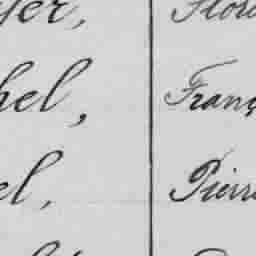 yer, Flor
hel, Franç
el, Pierre